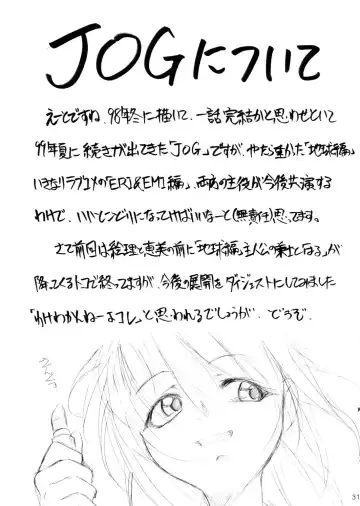 JOGについて
えーとですね、98年冬に描いて、一話完結かと思わせといて
99年夏に続きが出てきた「JOG」ですが、やたら重かった「地球編」
いきなりラブコメの「ERI&EMI編」、両方の主役が今後共演する
わけで、いいトコどりになってければいいなーと(無責任)思ってます。
さて前回は絵理と恵美の前に「地球編」主人公の乗士となる」が
降ってくるトコで終ってますが、今後の展開をダイジェストにしてみました
「わけわかんねーよコレ」と思われるでしょうが、どうぞ.
31